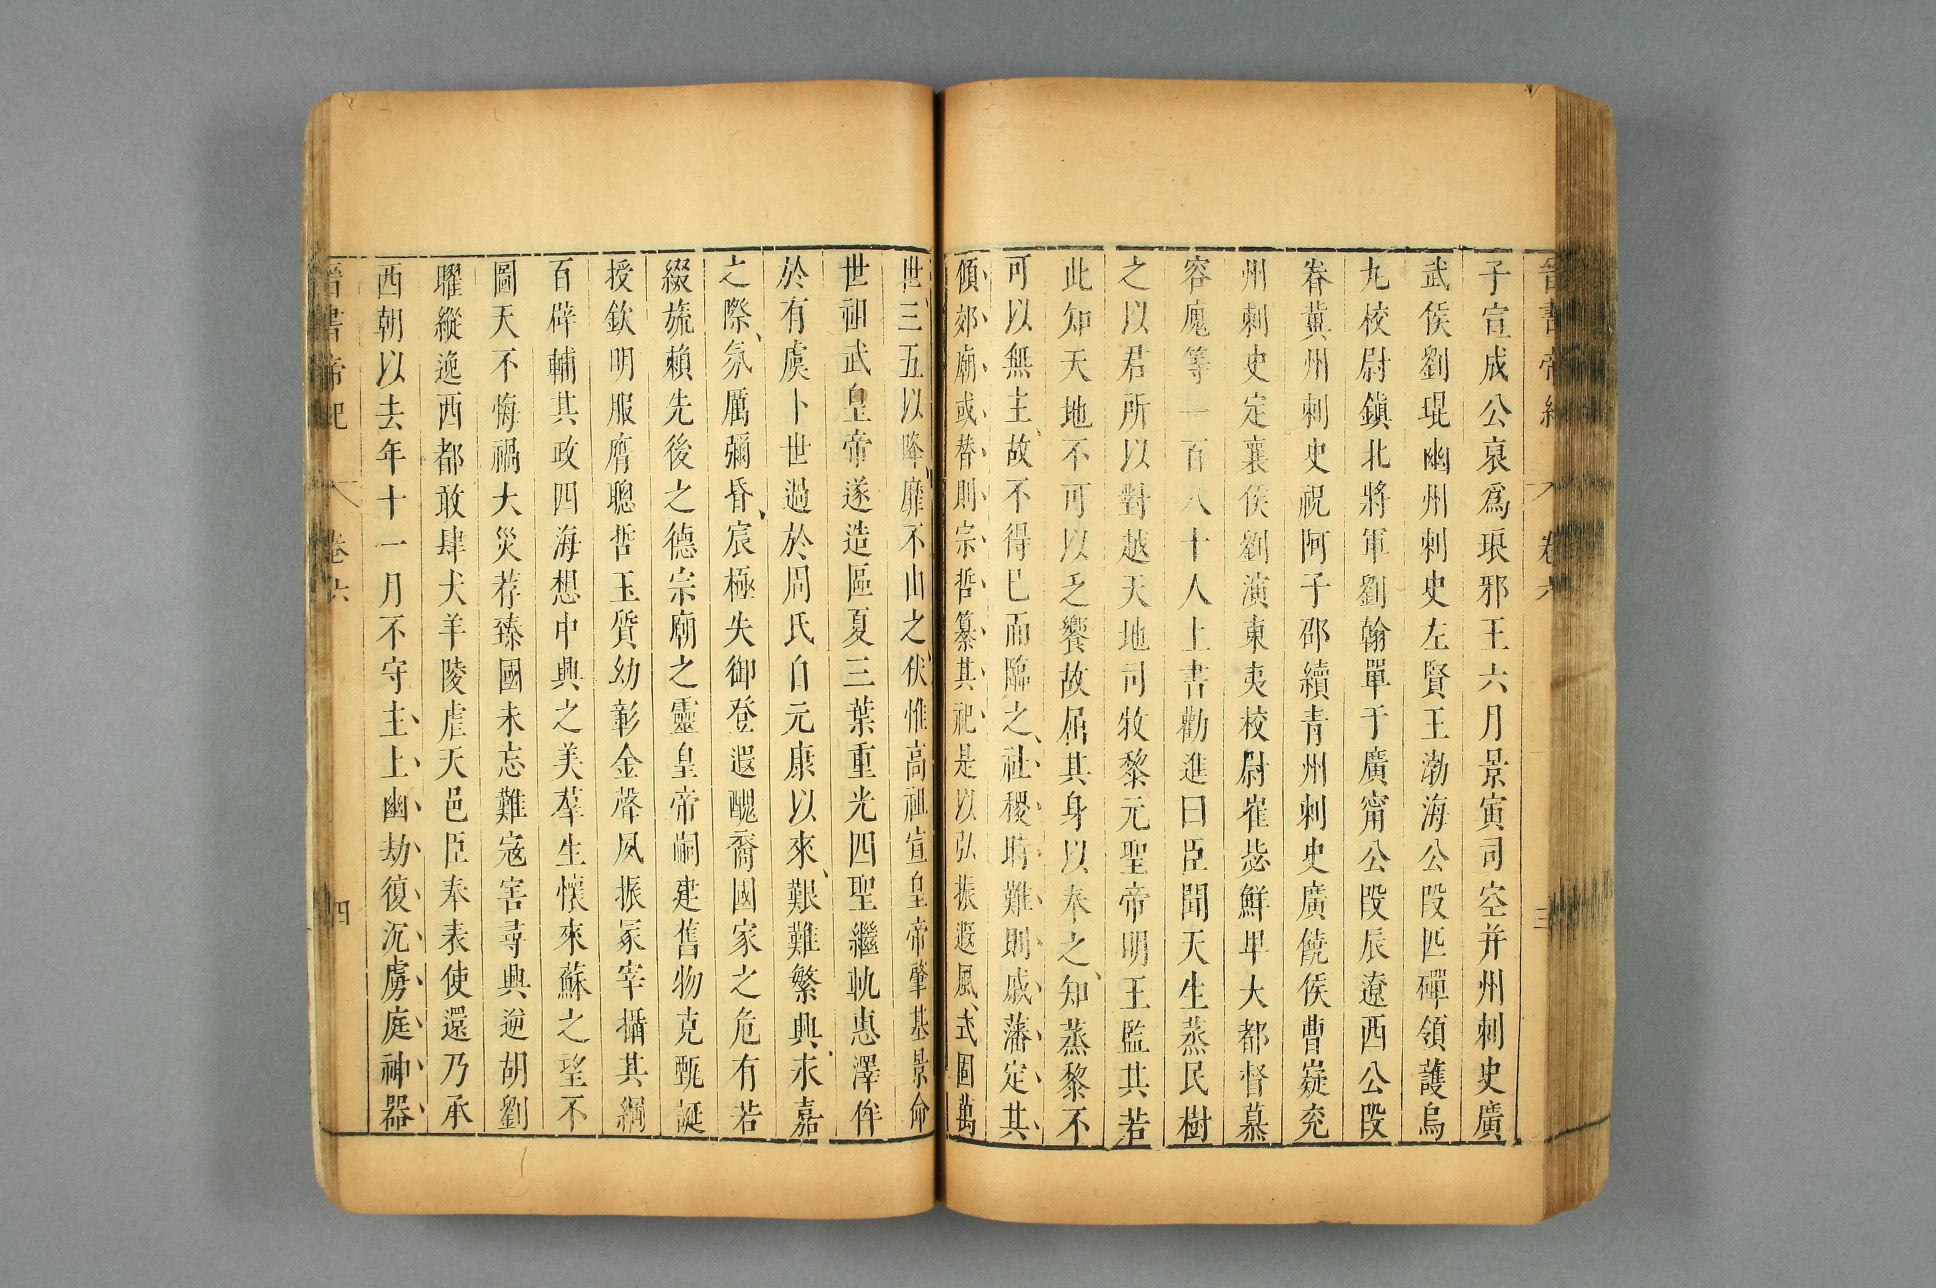 晉書帝紀 卷六 三
子宣成公裒爲琅邪王六月景寅司空并州刺史廣
武侯劉琨幽州刺史左賢王渤海公段匹磾領護烏
丸校尉鎮北將軍劉翰單于廣甯公段辰遼西公段
眷冀州刺史祝阿子邵續青州刺史廣饒侯曹嶷兗
州刺史定襄侯劉演東夷校尉崔毖鮮卑大都督慕
容廆等一百八十人上書勸進曰臣聞天生蒸民樹
之以君所以對越天地司牧黎元聖帝明王監其若
此知天地不可以乏饗故屈其身以奉之知蒸黎不
可以無主故不得已而臨之社稷時難則戚藩定其
傾郊廟或替則宗哲纂其祀是以弘振遐風式固萬
世三五以降靡不由之伏惟高祖宣皇帝肇基景命
世祖武皇帝遂造區夏三葉重光四聖繼軌惠澤侔
於有虞卜世過於周氏自元康以來艱難繁興永嘉
之際氛厲彌昏宸極失御登遐醜裔國家之危有若
綴旒賴先後之德宗廟之靈皇帝嗣建舊物克甄誕
授欽明服膺聰哲玉質幼彰金聲夙振冢宰攝其綱
百辟輔其政四海想中興之美羣生懷來蘇之望不
圖天不悔禍大災荐臻國未忘難寇害尋興逆胡劉
曜縱逸西都敢肆犬羊陵虐天邑臣奉表使還乃承
西朝以去年十一月不守主上幽劫復沉虜庭神器
晉書帝紀 卷六 四